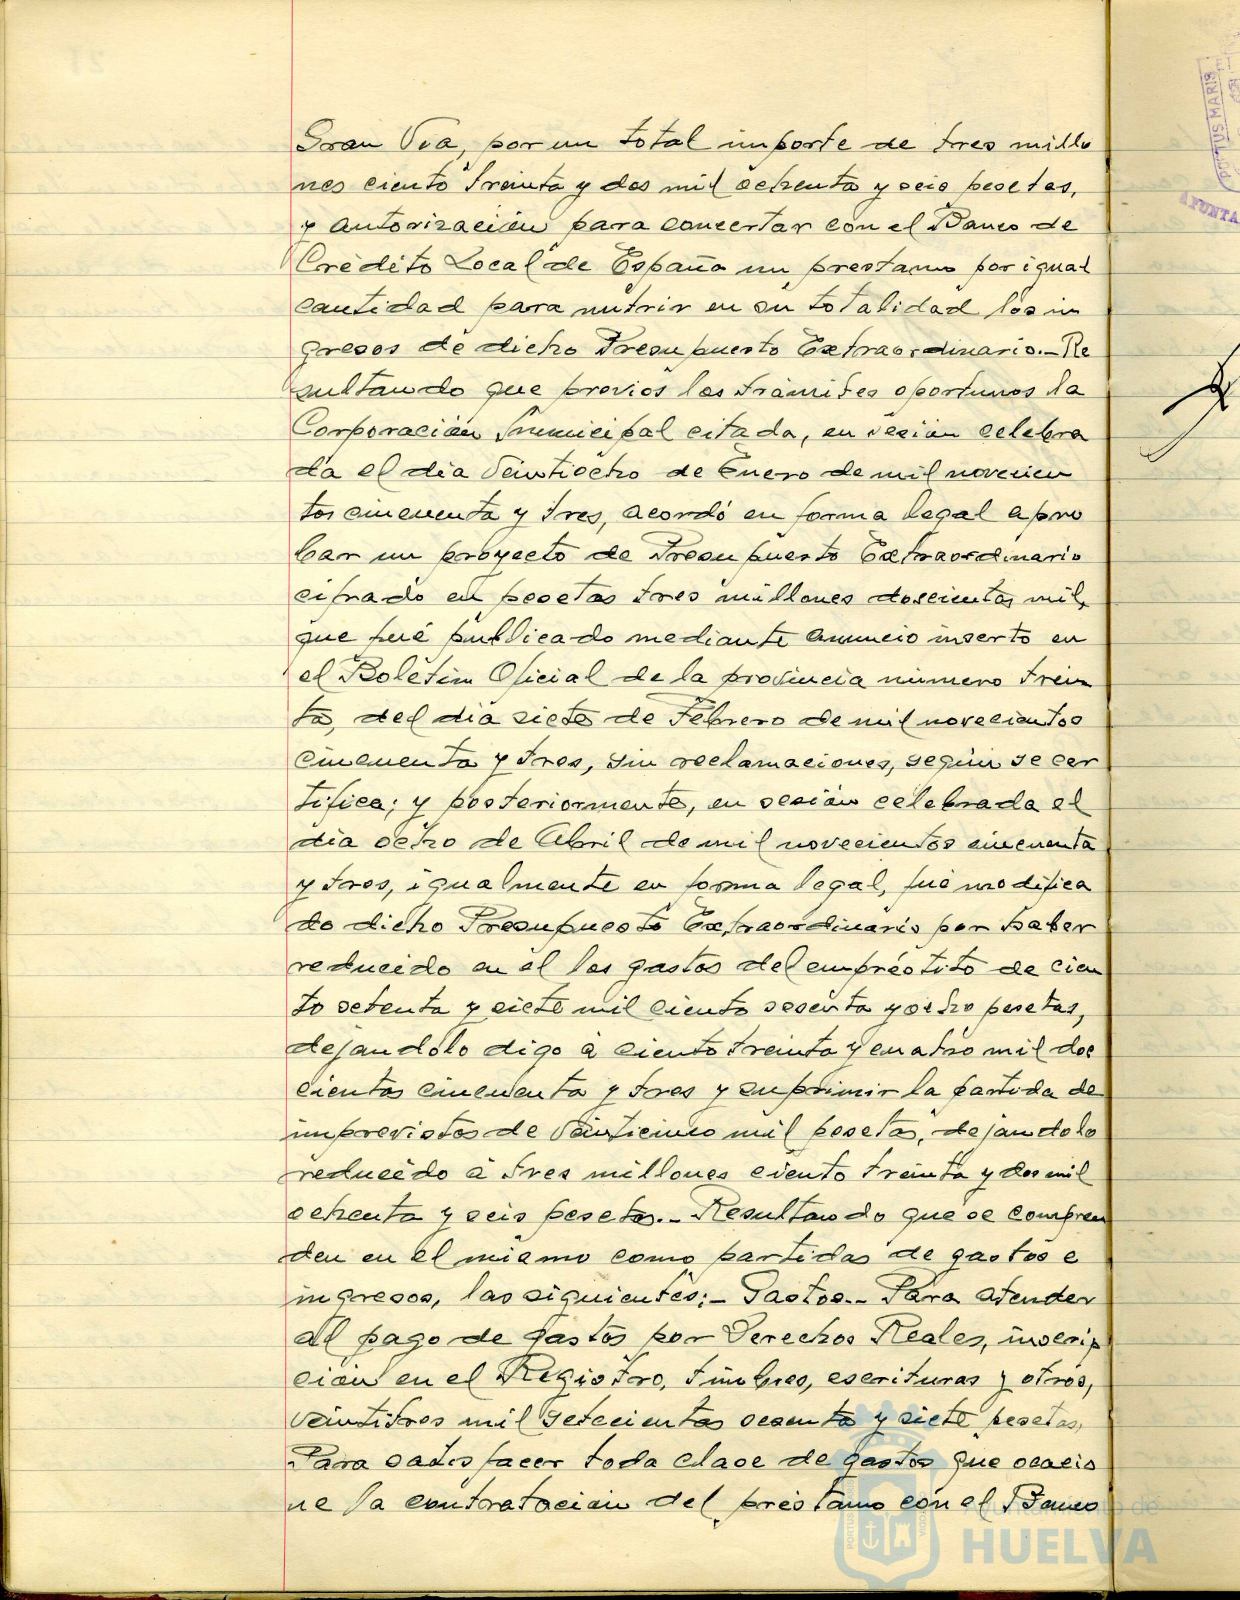 Gran Via, por un total importe de tres millo
nes ciento treinta y dos mil ochenta y seis pesetas,
y autorización para concertar con el Banco de
Crédito Local de España un prestamo por igual
cantidad para nutrir en su totalidad los in
gresos de dicho Presupuesto Extraordinario.- Re
sultando que previos los trámites oportunos la
Corporación Municipal citada, en sesión celebra
da el dia veintiocho de Enero de mil novecien
tos cincuenta y tres, acordó en forma legal apro
bar un proyecto de Presupuesto Extraordinario
cifrado en pesetas tres millones doscientas mil,
que fué publicado mediante anuncio inserto en
el Boletin Oficial de la provincia número trein
ta, del dia siete de Febrero de mil novecientos
cincuenta y tres, sin reclamaciones, según se cer
tifica; y posteriormente, en sesión celebrada el
dia ocho de Abril de mil novecientos cincuenta
y tres, igualmente en forma legal, fué modifica
do dicho Presupuesto Extraordinario por haber
reducido en él los gastos del empréstito de cien
to setenta y siete mil ciento sesenta y ocho pesetas,
dejandolo digo á ciento treinta y cuatro mil dos
cientas cincuenta y tres y suprimir la partida de
imprevistos de veinticinco mil pesetas, dejandolo
reducido á tres millones ciento treinta y dos mil
ochenta y seis pesetas.- Resultando que se compren
den en el mismo como partidas de gastos e
ingresos, las siguientes:- Gastos.- Para atender
al pago de gastos por Derechos Reales, inscrip
ción en el Registro, timbres, escrituras y otros,
veintitres mil setecientas sesenta y siete pesetas,
Para satisfacer toda clase de gastos que ocasio
ne la contratación del préstamo con el Banco
Ayuntamiento de
HUELVA
PORTUS MARIS
AYUNTA